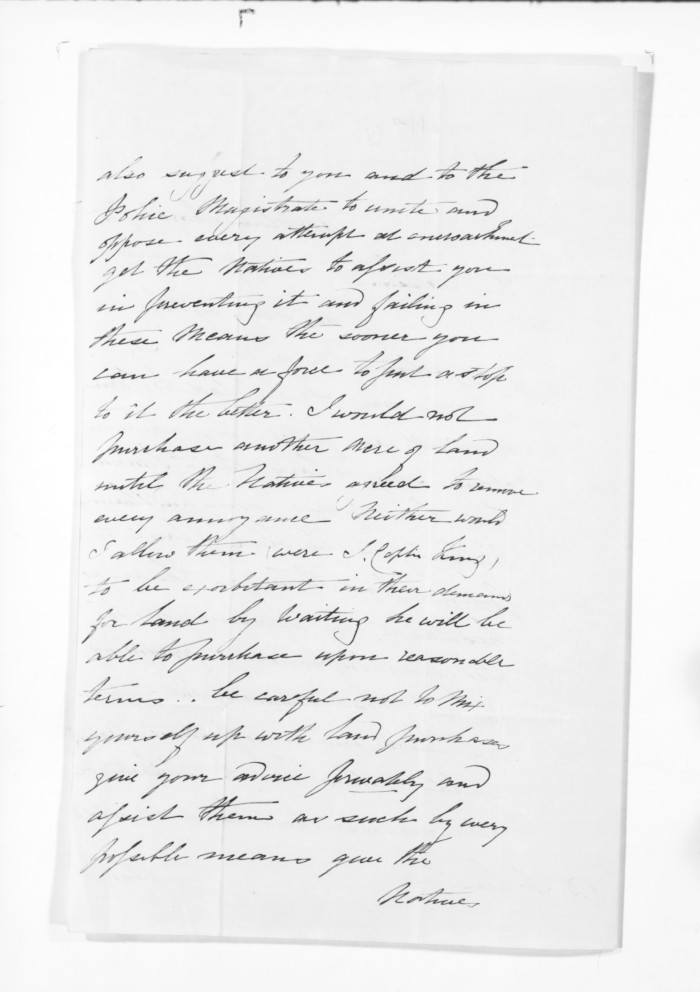 also suggest to you and to the
Police Magistrate to unite and
oppose every attempt at encroachment
get the Natives to assist you
in preventing it and failing in
these means the sooner you
can have a force to put a stop
to it the better. I would not
purchase another acre of land
until the Natives asked to remove
every annoyance Neither would
I allow them (were I Captn King)
to be exorbitant in their demands
for land by waiting he will be
able to purchase upon reasonable
terms.. be careful not to mix
yourself up with land purchases
give your advice privately and
assist them as such by every
possible means give the
Natives